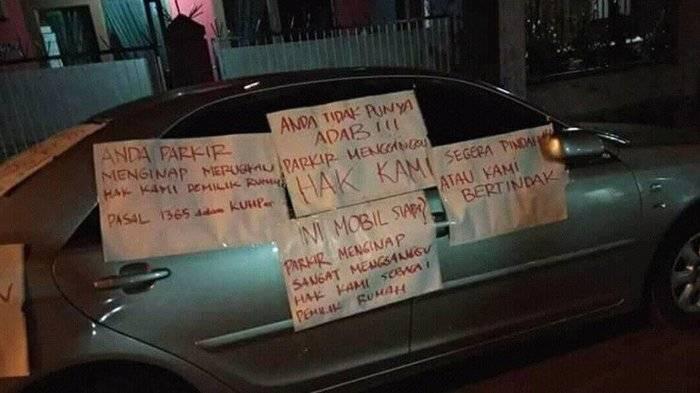 ANDA PARKIR
MENGINAP MERUGIKAN
HAK KAMI PEMILIK RUMAH
PASAL 1365 dalam KUHPer
ANDA TIDAK PUNYA
ADAB!!!
PARKIR MENGGANGGU
HAK KAMI
INI MOBIL SIAPA?
PARKIR MENGINAP
SANGAT MENGGANGGU
HAK KAMI SEBAGAI
PEMILIK RUMAH
SEGERA PINDAH
ATAU KAMI
BERTINDAK